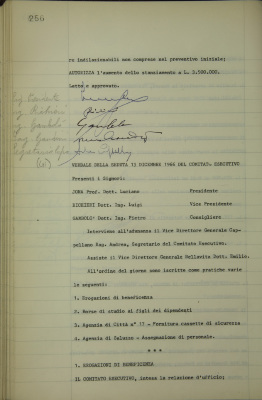 256
ro indilazionabili non comprese nel preventivo iniziale;
AUTORIZZA l'aumento dello stanziamento a L. 3.500.000.
Letto e approvato.
VERBALE DELLA SEDUTA 13 DICEMBRE 1966 DEL COMITATO ESECUTIVO
Presenti i Signori:
JONA Prof. Dott. Luciano Presidente
Dott. Ing. Luigi Vice Presidente
Dott. Ing. Pietro Consigliere
Interviene all'adunanza il Vice Direttore Generale Cap-
pellano Rag. Andrea, Segretario del Comitato Esecutivo.
Assiste il Vice Direttore Generale Dott. Emilio.
All'ordine del giorno sono iscritte come pratiche varie
le seguenti:
1. Erogazioni di beneficenza
2. Borse di studio ai figli dei dipendenti
3. Agenzia di Città n° 11 - Fornitura cassette di sicurezza
4. Agenzia di Saluzzo - Assegnazione di personale.
* * *
1. EROGAZIONI DI BENEFICENZA
IL COMITATO ESECUTIVO, intesa la relazione d'ufficio;